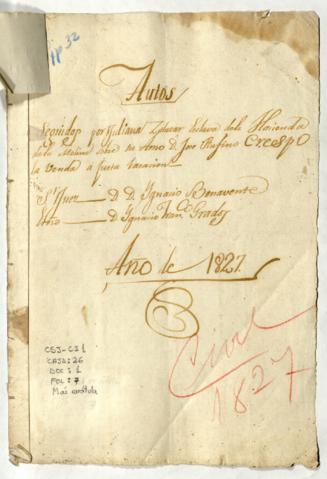 pp 32
Autos
Seguidos por Juliana Salazar Esclava dela Hacienda
dela Molina sobre su Amo D. Jose Rufino Crespo
la venda a justa tasacion
S.r Juez — D. D. Ignacio Benavente
Ess.no — D. Ignacio Fran.co Grados
Año de 1827.
Civil
1827
CSJ-CS1
CAJA: 26
DOC: 1
FOL: 7
Más carátula